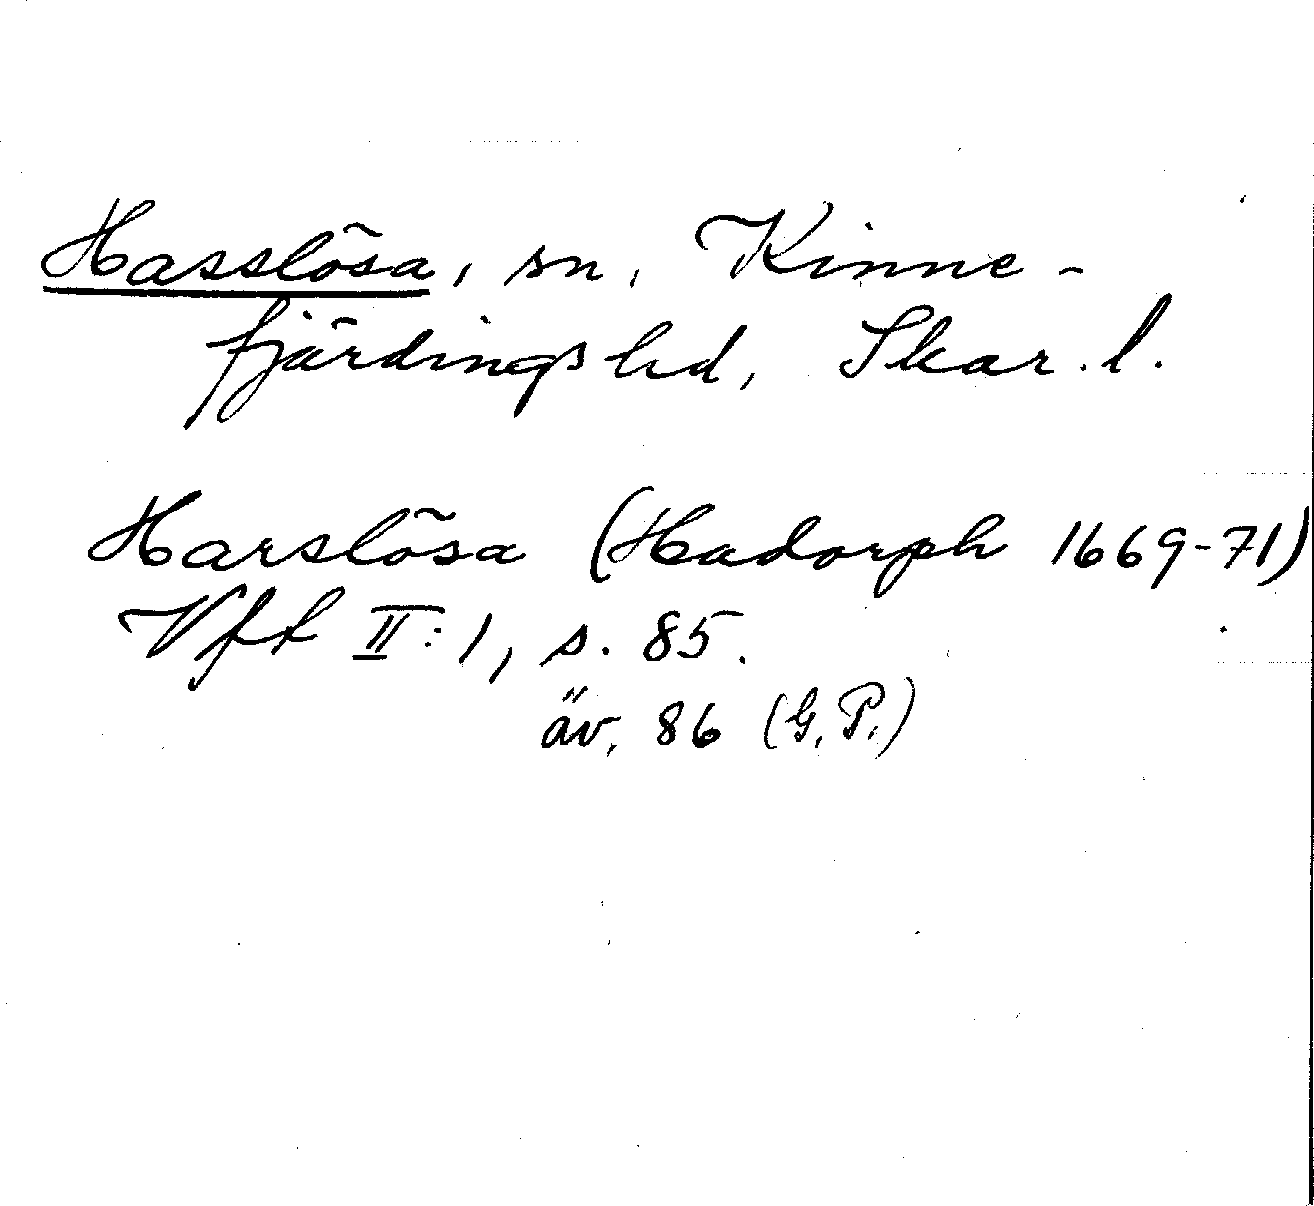 Hasslösa, sn, Kinne-
fjärdings hd, Skar. l.
Harslösa (Hadorph 1669-71)
Vft II:1, s. 85.
äv. 86 (G.P.)